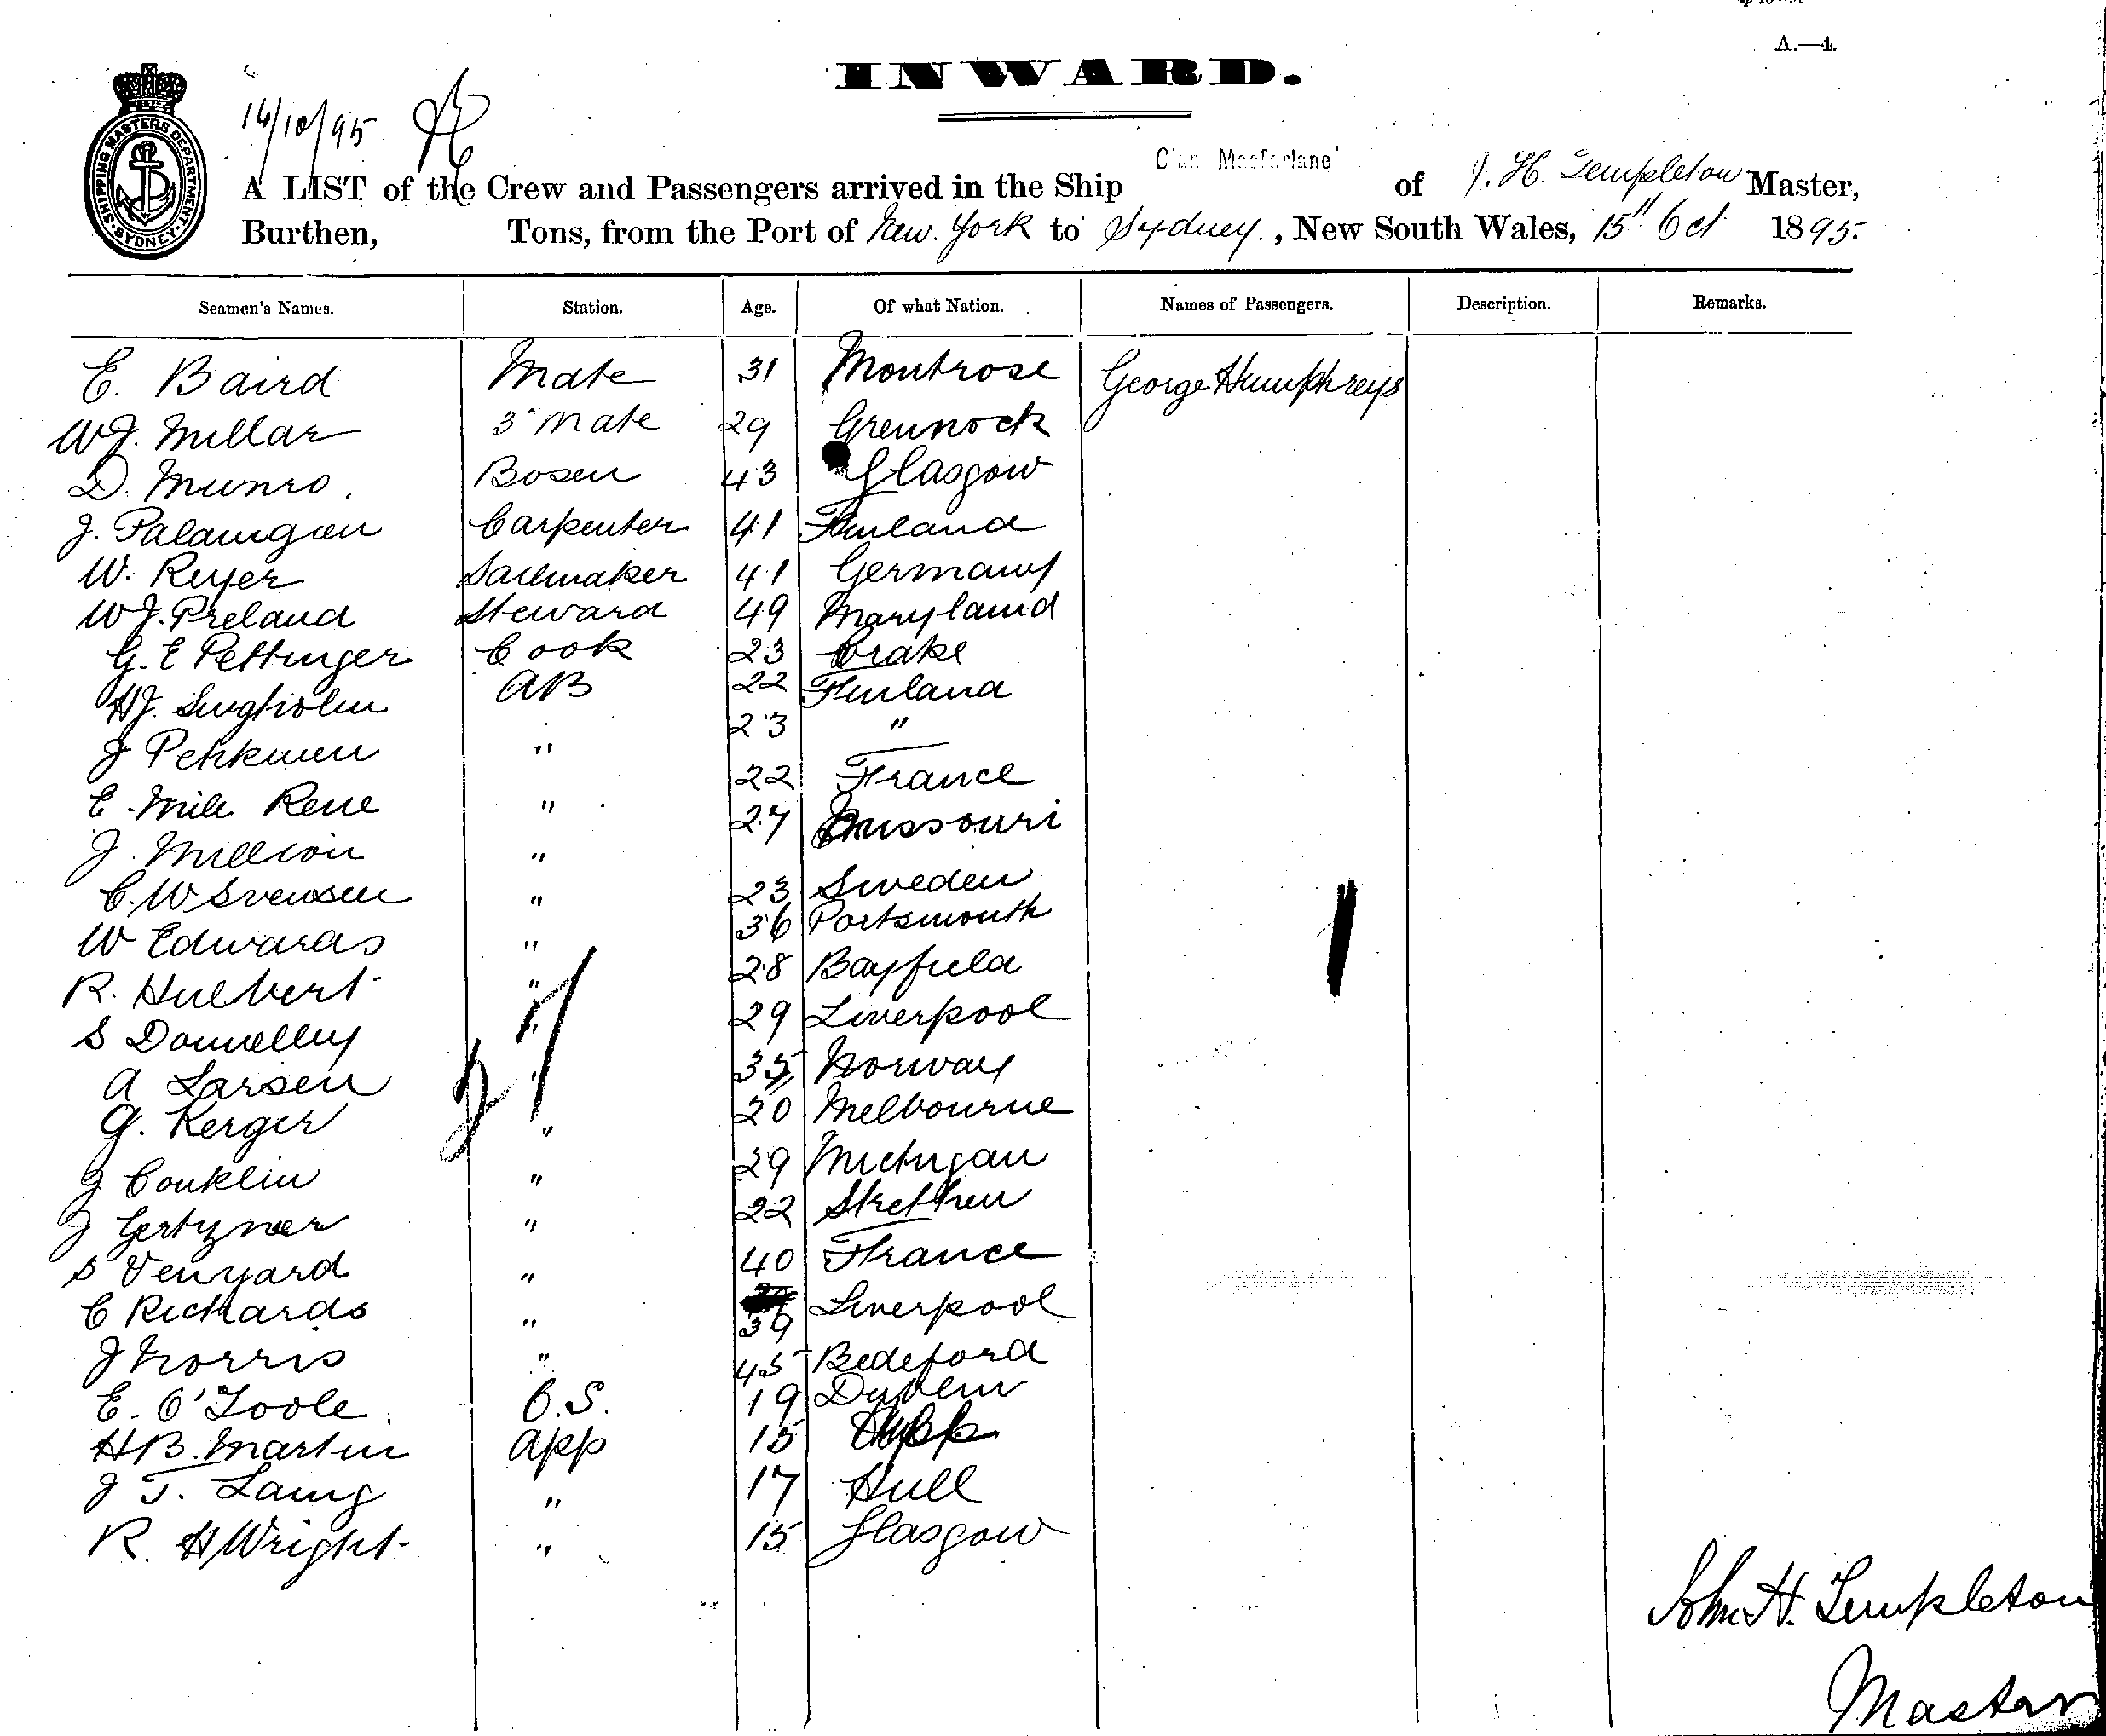 A.—4.
INWARD.
SHIPPING MASTERS DEPARTMENT SYDNEY
16/10/95
A LIST of the Crew and Passengers arrived in the Ship Clan Macfarlane of J. H. Templeton Master,
Burthen, Tons, from the Port of New York to Sydney, New South Wales, 15th Oct 1895.
Seamen's Names. Station. Age. Of what Nation. Names of Passengers. Description. Remarks.
E. Baird Mate 31 Montrose George Humphreys
W J. Millar 3" Mate 29 Greenock
D. Munro. Bosen 43 Glasgow
J. Carpenter 41 Finland
W. Reyer Sailmaker 41 Germany
W J. Preland Steward 49 Maryland
G. E Pettinger Cook 23 Brake
H J. Lingholm AB 22 Finland
J Pehkinen " 23 "
E. Mile Rene " 22 France
J. Million " 27 Missouri
C. W Svensen " 23 Sweden
W Edwards " 36 Portsmouth
R. Hulbert " 28 Bayfield
S Donnelly " 29 Liverpool
A Larsen " 35 Norway
G. Kerger " 20 Melbourne
J Conklin " 29 Michigan
J Gertzner " 22
S Venyard " 40 France
C Richards " 39 Liverpool
J Norris " 45 Bedeford
E. O'Toole O.S. 19 Dublin
H B. Martin App 15
J T. Laing " 17 Hull
R. H Wright " 15 Glasgow
27
John H. Templeton
Master